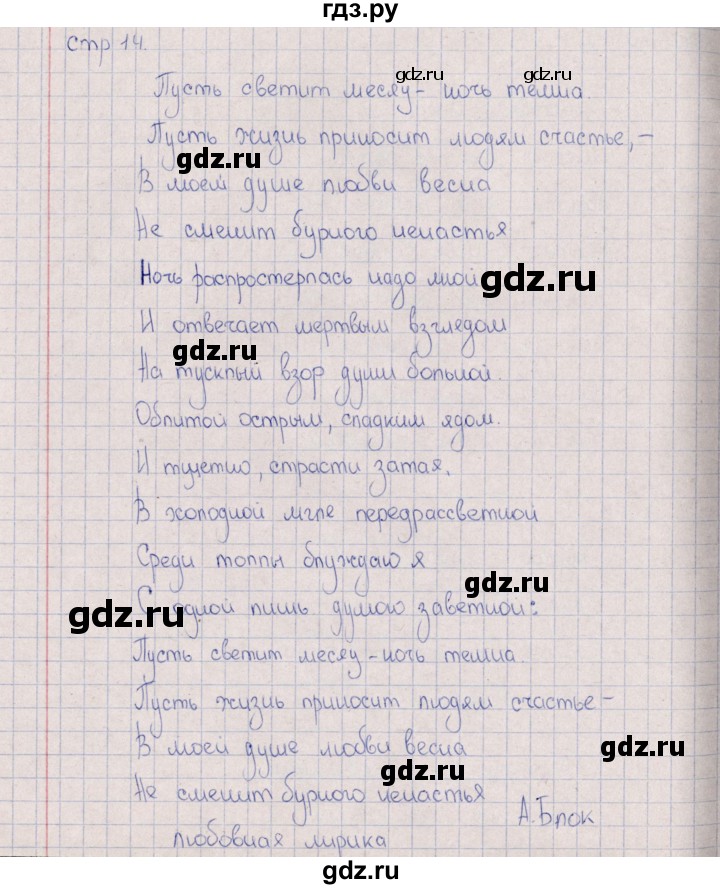 гдз.ру
стр 14.
gdz.ru gdz.ru
Пусть светит месяц - ночь темна.
Пусть жизнь приносит людям счастье, -
gdz.ru
В моей душе любви весна
Не сменит бурного ненастья
Ночь распростерлась надо мной
gdz.ru
И отвечает мертвым взглядом
gdz.ru
На тусклый взор души больной.
Облитой острым, сладким ядом.
И тщетно, страсти затая,
В холодной мгле передрассветной
Среди толпы блуждаю я
gdz.ru
С одной лишь думою заветной:
gdz.ru
Пусть светит месяц - ночь темна.
Пусть жизнь приносит людям счастье -
В моей душе любви весна
gdz.ru
gdz.ru
Не сменит бурного ненастья
А.Блок
любовная лирика
gdz.ru